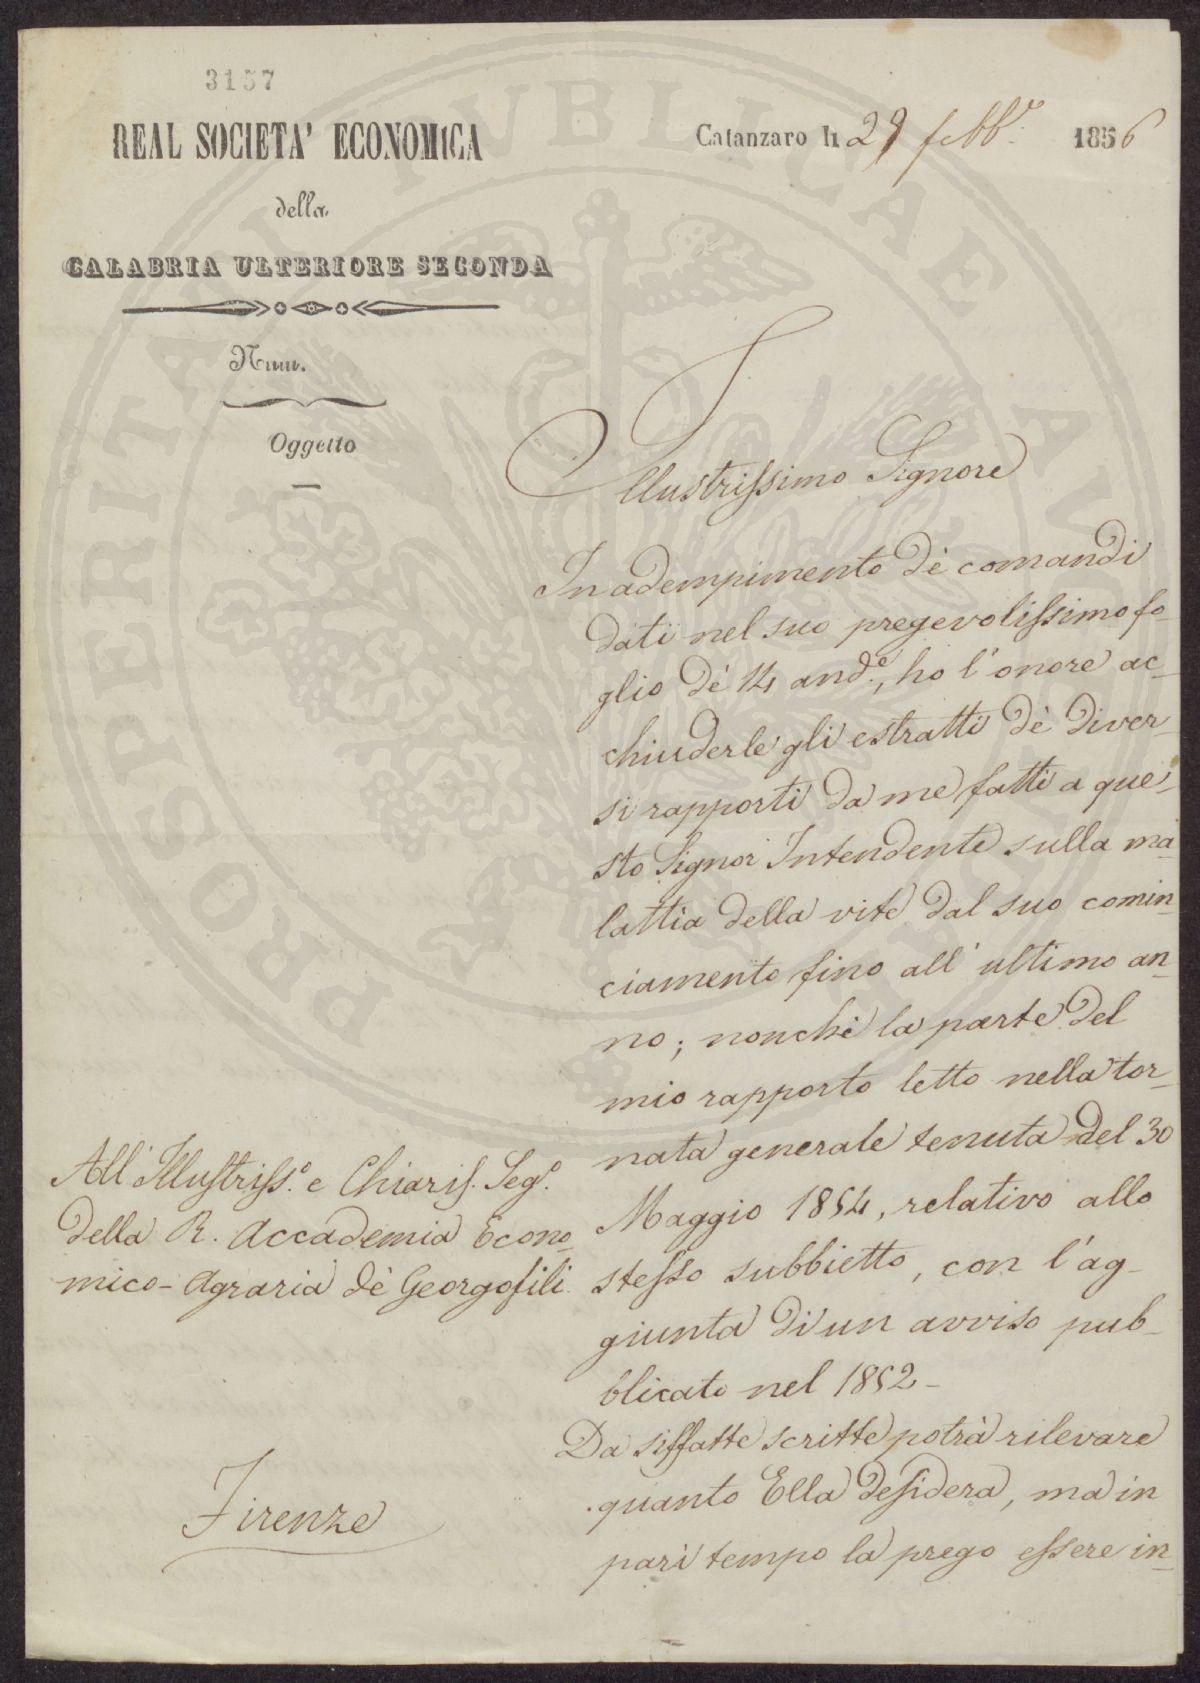 3157
REAL SOCIETA' ECONOMICA
della
CALABRIA ULTERIORE SECONDA
Num.
Oggetto
Catanzaro li 29 febb.º 1856
Illustrissimo Signore
In adempimento dè comandi
dati nel suo pregevolissimo fo-
glio dè 14 and.e, ho l'onore ac-
chiuderle gli estratti dè diver-
si rapporti da me fatti a que-
sto Signor Intendente sulla ma-
lattia della vite dal suo comin-
ciamento fino all'ultimo an-
no; nonchè la parte del
mio rapporto letto nella tor-
nata generale tenuta del 30
Maggio 1854, relativo allo
stesso subbietto, con l'ag-
giunta di un avviso pub-
blicato nel 1852-
Da siffatte scritte potrà rilevare
quanto Ella desidera, ma in
pari tempo la prego essere in-
All'Illustriss.º e Chiaris. Seg.º
della R. Accademia Econo-
mico-Agraria dè Georgofili
Firenze
PROSPERITATI PUBLICAE AUGENDAE